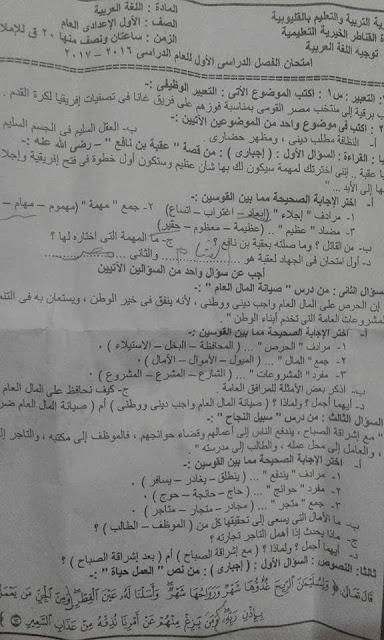 التربية والتعليم بالقليوبية
المادة : اللغة العربية
القناطر الخيرية التعليمية
الصف : الأول الإعدادى العام
توجيه اللغة العربية
الزمن : ساعتان ونصف منها ٢٠ ق للإملاء
امتحان الفصل الدراسى الأول للعام الدراسى ٢٠١٦ – ٢٠١٧
التعبير : س١ : اكتب الموضوع الآتى : التعبير الوظيفى :-
برقية إلى منتخب مصر القومى بمناسبة فوزهم على فريق غانا فى تصفيات إفريقيا لكرة القدم .
اكتب فى موضوع واحد من الموضوعين الآتيين :-
أ- النظافة مطلب دينى ، ومظهر حضارى . ب- العقل السليم فى الجسم السليم
القراءة : السؤال الأول : ( إجبارى ) : من قصة " عقبة بن نافع " – رضى الله عنه :-
يا عقبة .. إنى أخترتك لمهمة سيكون لك بها شأن عظيم وستكون أول خطوة فى فتح إفريقية وإجلاء
إلى الأبد .. "
أ- اختر الإجابة الصحيحة مما بين القوسين :-
١- مرادف " إجلاء " (إبعاد – اغتراب – اتساع) ٢- جمع " مهمة " (مهموم – مهام –
٣- مضاد " عظيم " .. (عظيمة – معظوم – حقير)
ب- من القائل ؟ وما صلته بعقبة بن نافع ؟ ج- ما المهمة التى اختاره لها ؟
د- أول امتحان فى الجهاد لعقبة هو ........ والثانى ........
أجب عن سؤال واحد من السؤالين الآتيين
السؤال الثانى : من درس " صيانة المال العام " :-
إن الحرص على المال العام واجب دينى ووطنى ، لأنه ينفق فى خير الوطن ، ويستعان به فى
المشروعات العامة التى تخدم أبناء الوطن " .
أ- اختر الإجابة الصحيحة مما بين القوسين :-
١- مرادف " الحرص " ... ( المحافظة – البخل – الاستيلاء ) .
٢- جمع " المال " ... ( الميول – الأموال – الآمال ) .
٣- مفرد " المشروعات " ... ( الشارع – المشرع – المشروع ) .
ب- اذكر بعض الأمثلة للمرافق العامة ج- كيف نحافظ على المال العام
د- أيهما أجمل ؟ ولماذا ؟ ( صيانة المال العام واجب دينى ووطنى ) أم ( صيانة المال العام
السؤال الثالث : من درس " سبيل النجاح " :-
" مع إشراقة الصباح ، يندفع الناس إلى أعمالهم وقضاء حوائجهم ، فالموظف إلى مكتبه ، والتاجر إلى
، والعامل إلى محل عمله ، والطالب إلى مدرسته " .
أ- اختر الإجابة الصحيحة مما بين القوسين :-
١- مرادف " يندفع " ... ( ينطلق – يغادر – يسافر ) .
٢- مفرد " حوائج " ... ( حاج – حاجة – حوج ) .
٣- جمع " متجر " ... ( مجادر – متجار – متاجر ) .
ب- ما الآمال التى يسعى إلى تحقيقها كل من ( الموظف – الطالب ) ؟
ج- ماذا يحدث إذا أهمل التاجر تجارته ؟
د- أيهما أجمل ؟ ولماذا ؟ ( مع إشراقة الصباح ) أم ( بعد إشراقة الصباح ) ؟
ثالثا : النصوص : السؤال الأول : ( إجبارى ) : من نص " العمل حياة " :-
قال تعالى : ﴿ وَلِسُلَيْمَانَ الرِّيحَ غُدُوُّهَا شَهْرٌ وَرَوَاحُهَا شَهْرٌ وَأَسَلْنَا لَهُ عَيْنَ الْقِطْرِ وَمِنَ الْجِنِّ مَن يَعْمَلُ
بِإِذْنِ رَبِّهِ وَمَن يَزِغْ مِنْهُمْ عَنْ أَمْرِنَا نُذِقْهُ مِنْ عَذَابِ السَّعِيرِ